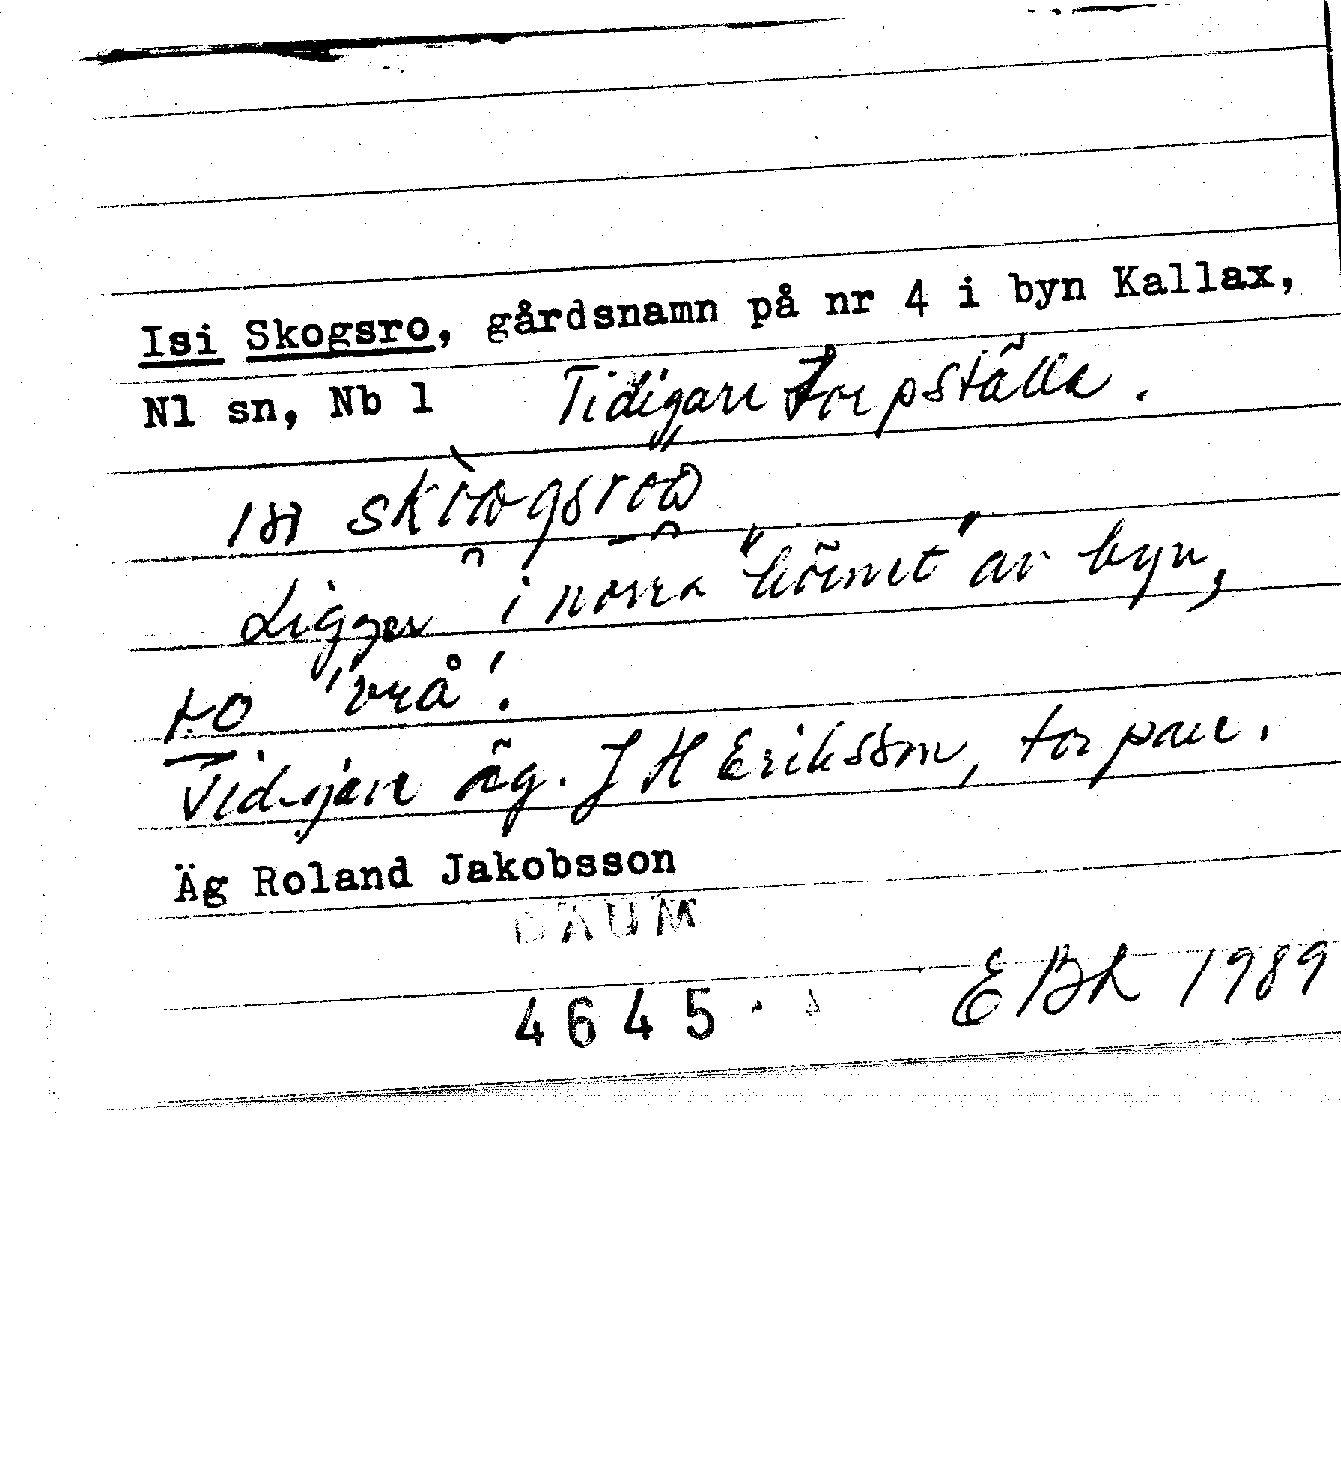 Isi Skogsro, gårdsnamn på nr 4 i byn Kallax,
Nl sn, Nb 1 Tidigare Torpställe.
isi
Ligger i norra "hörnet" av byn,
ro 'vrå'.
Tidigare äg. J H Eriksson, torpare.
Äg Roland Jakobsson
DAUM
4645
E Bh 1989